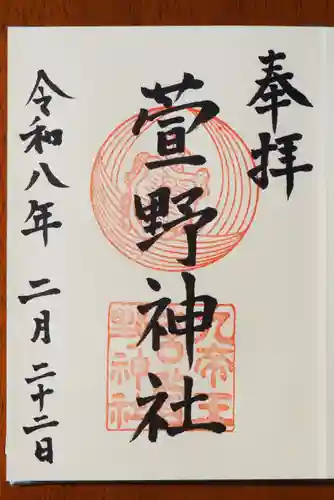 奉拝
萱野神社
令和八年 二月二十二日